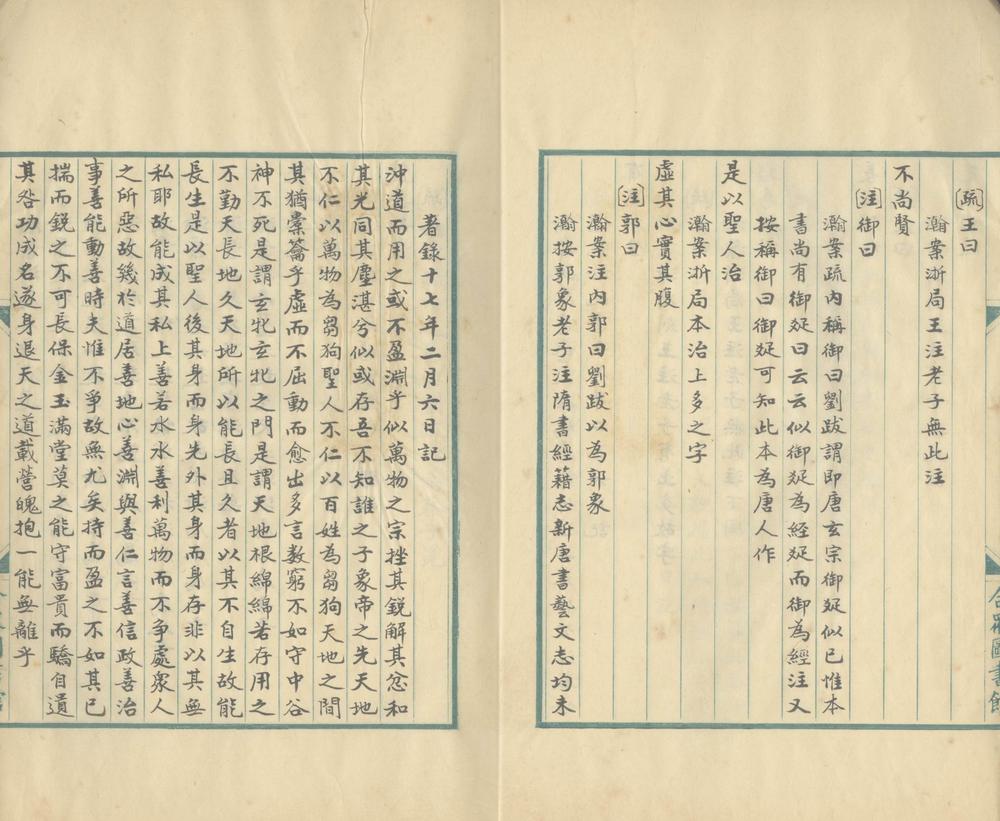 疏王曰
瀚案浙局王注老子無此注
不尚賢
注御曰
瀚案疏內稱御曰劉跋謂即唐玄宗御疏似已惟本
書尚有御疏曰云云似御疏為經疏而御為經注又
按稱御曰御疏可知此本為唐人作
是以聖人治
瀚案浙局本治上多之字
虛其心實其腹
注郭曰
瀚案注內郭曰劉跋以為郭象
瀚按郭象老子注隋書經籍志新唐書藝文志均未
著錄十七年二月六日記
沖道而用之或不盈淵乎似萬物之宗挫其銳解其忿和
其光同其塵湛兮似或存吾不知誰之子象帝之先天地
不仁以萬物為芻狗聖人不仁以百姓為芻狗天地之間
其猶橐籥乎虛而不屈動而愈出多言數窮不如守中谷
神不死是謂玄牝玄牝之門是謂天地根綿綿若存用之
不勤天長地久天地所以能長且久者以其不自生故能
長生是以聖人後其身而身先外其身而身存非以其無
私耶故能成其私上善若水水善利萬物而不爭處衆人
之所惡故幾於道居善地心善淵與善仁言善信政善治
事善能動善時夫惟不爭故無尤矣持而盈之不如其已
揣而銳之不可長保金玉滿堂莫之能守富貴而驕自遺
其咎功成名遂身退天之道載營魄抱一能無離乎
圖書館